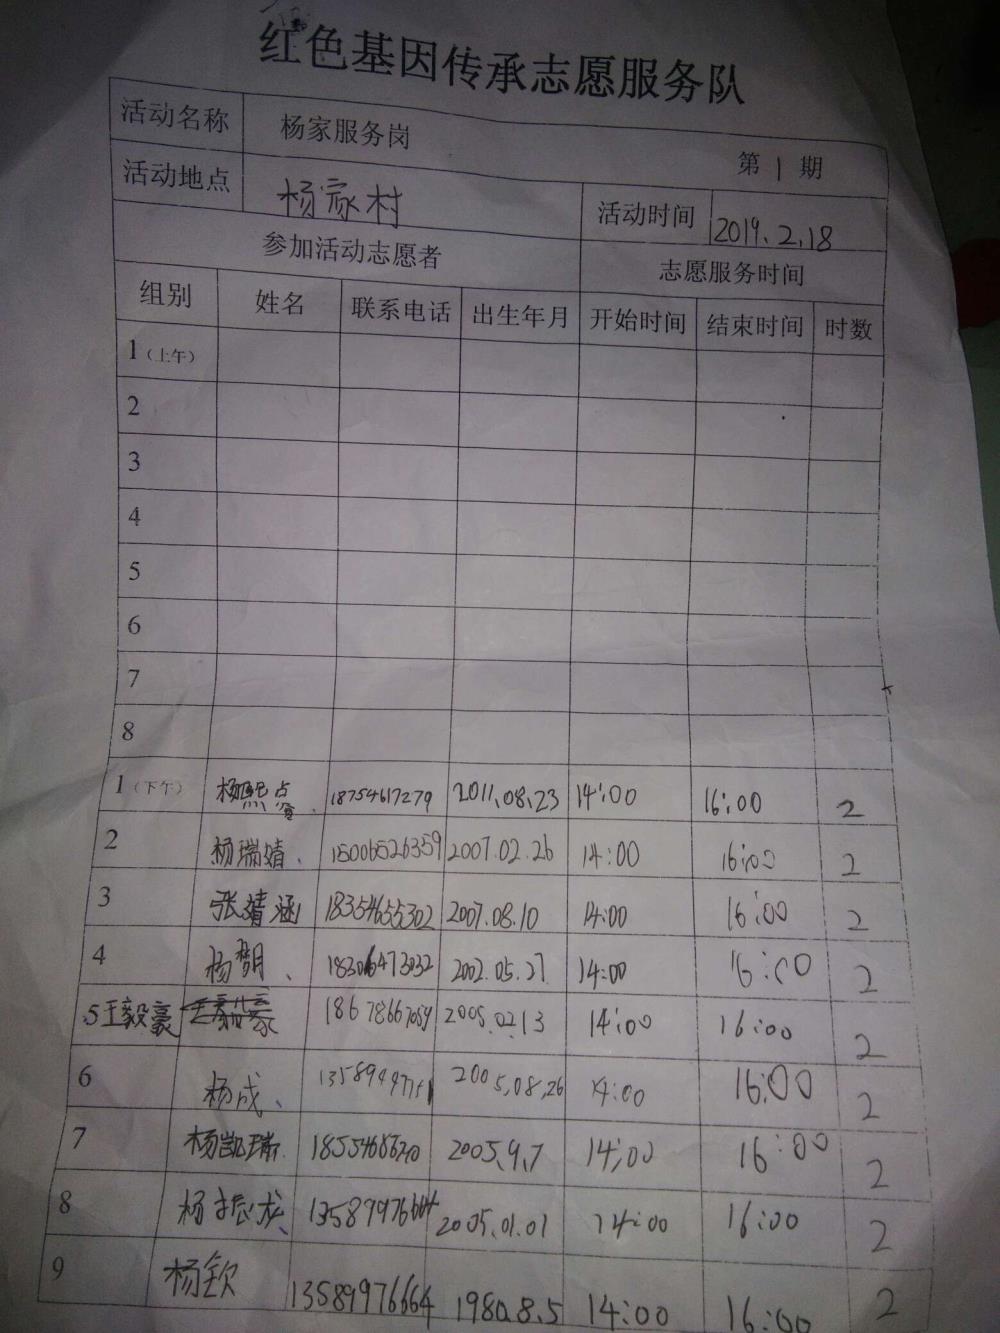 红色基因传承志愿服务队
活动名称 杨家服务岗 第1期
活动地点 杨家村 活动时间 2019.2.18
参加活动志愿者 志愿服务时间
组别 姓名 联系电话 出生年月 开始时间 结束时间 时数
1(上午)
2
3
4
5
6
7
8
1(下午) 杨熙 18754617279 2011.08.23 14:00 16:00 2
2 杨瑞婧 15006526359 2007.02.26 14:00 16:00 2
3 张婧涵 18354655302 2007.08.10 14:00 16:00 2
4 杨明 18306473032 2002.05.27 14:00 16:00 2
5 王毅豪 18678667059 2005.02.13 14:00 16:00 2
6 杨成 2005.08.26 14:00 16:00 2
7 杨凯瑞 2005.9.7 14:00 16:00 2
8 杨振龙 13589976664 2005.01.01 14:00 16:00 2
9 杨钦 13589976664 1980.8.5 14:00 16:00 2